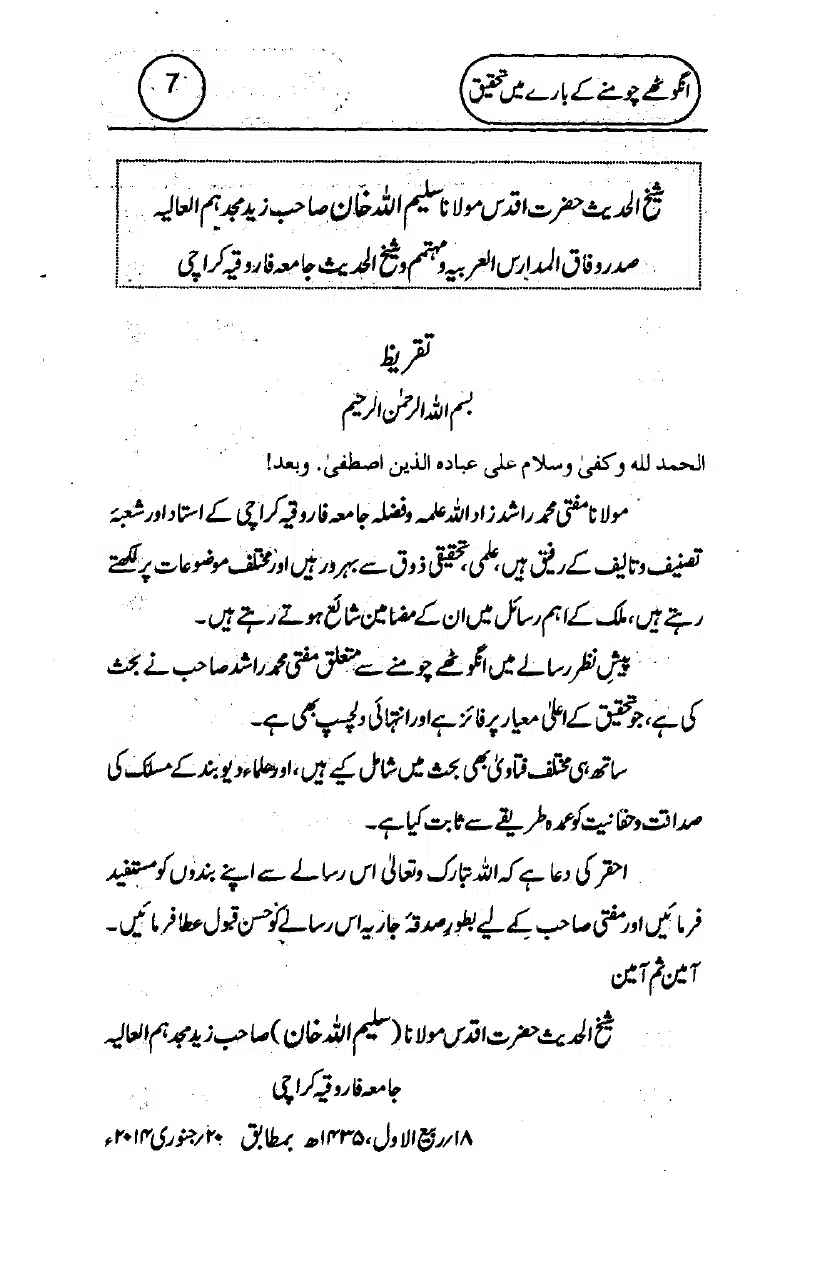 انگوٹھے چومنے کے بارے میں تحقیق
7
شیخ الحدیث حضرت اقدس مولانا سلیم اللہ خان صاحب زید مجدہم العالیہ
صدر وفاق المدارس العربیہ ومہتمم وشیخ الحدیث جامعہ فاروقیہ کراچی
تقریظ
بسم اللہ الرحمٰن الرحیم
الحمد لله وكفىٰ وسلام على عباده الذين اصطفىٰ. وبعد!
مولانا مفتی محمد راشد زاد اللہ علمہ وفضلہ جامعہ فاروقیہ کراچی کے استاد اور شعبۂ
تصنیف وتالیف کے رفیق ہیں، علمی، تحقیقی ذوق سے بہرور ہیں اور مختلف موضوعات پر لکھتے
رہتے ہیں، ملک کے اہم رسائل میں ان کے مضامین شائع ہوتے رہتے ہیں۔
پیشِ نظر رسالے میں انگوٹھے چومنے سے متعلق مفتی محمد راشد صاحب نے بحث
کی ہے، جو تحقیق کے اعلیٰ معیار پر فائز ہے اور انتہائی دلچسپ بھی ہے۔
ساتھ ہی مختلف فتاویٰ بھی بحث میں شامل کیے ہیں، اور علماء دیوبند کے مسلک کی
صداقت وحقانیت کو عمدہ طریقے سے ثابت کیا ہے۔
احقر کی دعا ہے کہ اللہ تبارک وتعالیٰ اس رسالے سے اپنے بندوں کو مستفید
فرمائیں اور مفتی صاحب کے لیے بطورِ صدقۂ جاریہ اس رسالے کو حسن قبول عطا فرمائیں۔
آمین ثم آمین
شیخ الحدیث حضرت اقدس مولانا (سلیم اللہ خان) صاحب زید مجدہم العالیہ
جامعہ فاروقیہ کراچی
۱۸/ربیع الاول، ۱۴۳۵ھ بمطابق ۲۰/جنوری ۲۰۱۴ء